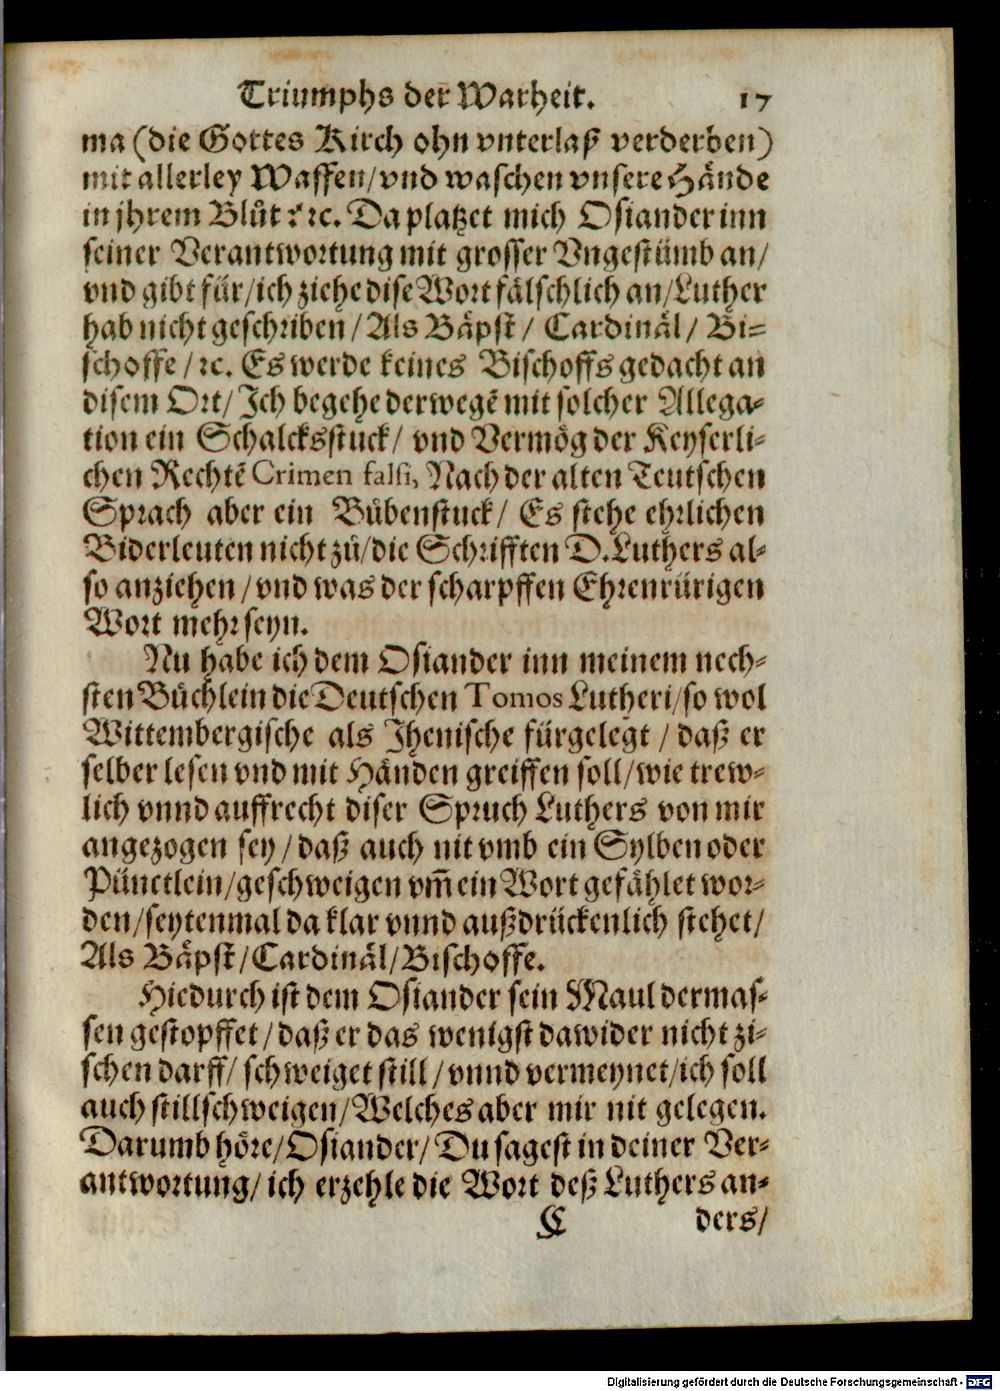 Triumphs der Warheit. 17
ma (die Gottes Kirch ohn vnterlaß verderben)
mit allerley Waffen/vnd waschen vnsere Hände
in jhrem Blůt? ꝛc. Da platzet mich Osiander inn
seiner Verantwortung mit grosser Vngestümb an/
vnd gibt für/ich ziehe dise Wort fälschlich an/Luther
hab nicht geschriben/Als Bäpst/ Cardinäl/ Bi⸗
schoffe/ꝛc. Es werde keines Bischoffs gedacht an
disem Ort/ Ich begehe derwegẽ mit solcher Allega⸗
tion ein Schalcksstuck/ vnd Vermög der Keyserli⸗
chen Rechtẽ Crimen falsi, Nach der alten Teutschen
Sprach aber ein Bůbenstuck/ Es stehe ehrlichen
Biderleuten nicht zů/die Schrifften D. Luthers al⸗
so anziehen/vnd was der scharpffen Ehrenrürigen
Wort mehr seyn.
Nu habe ich dem Osiander inn meinem nech⸗
sten Büchlein die Deutschen Tomos Lutheri/so wol
Wittembergische als Jhenische fürgelegt/ daß er
selber lesen vnd mit Händen greiffen soll/wie trew⸗
lich vnnd auffrecht diser Spruch Luthers von mir
angezogen sey/daß auch nit vmb ein Sylben oder
Pünctlein/geschweigen vm̃ ein Wort gefählet wor⸗
den/seytenmal da klar vnnd außdrückenlich stehet/
Als Bäpst/Cardinäl/Bischoffe.
Hiedurch ist dem Osiander sein Maul dermas⸗
sen gestopffet/daß er das wenigst dawider nicht zi⸗
schen darff/ schweiget still/vnnd vermeynet/ich soll
auch stillschweigen/Welches aber mir nit gelegen.
Darumb höre/Osiander/Du sagest in deiner Ver⸗
antwortung/ich erzehle die Wort deß Luthers an⸗
C ders/
Digitalisierung gefördert durch die Deutsche Forschungsgemeinschaft - DFG